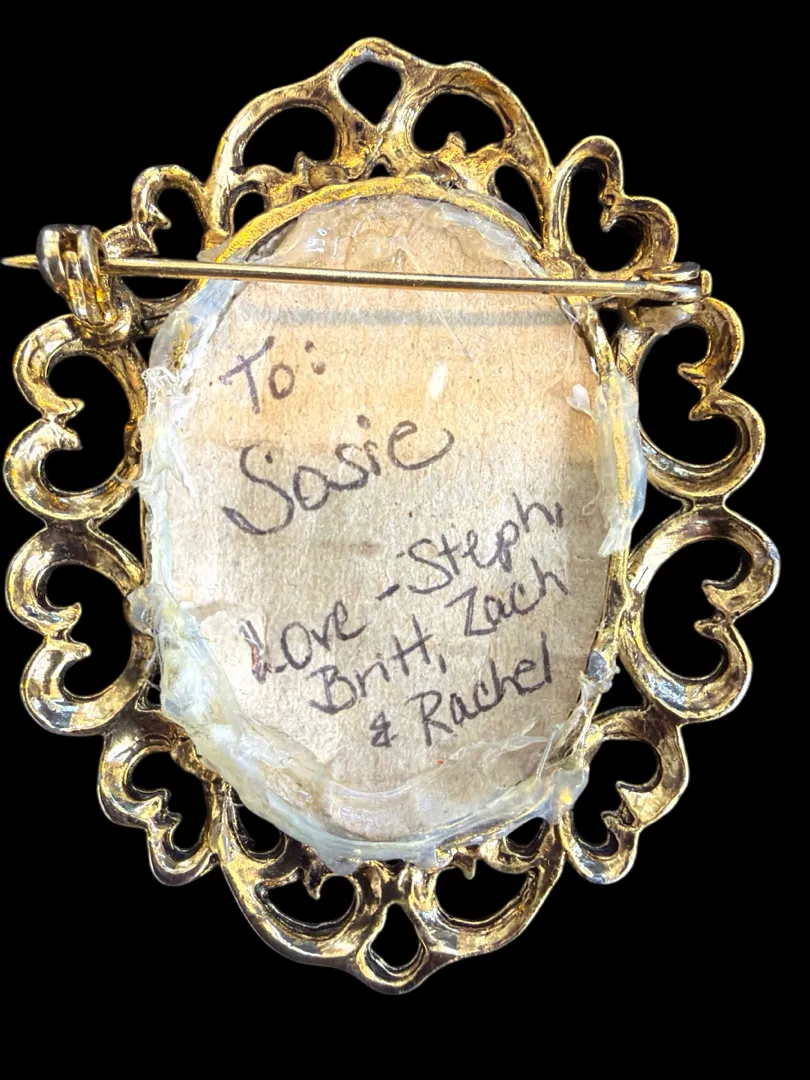 To:
Sasie
Love - Steph,
Britt, Zach
& Rachel